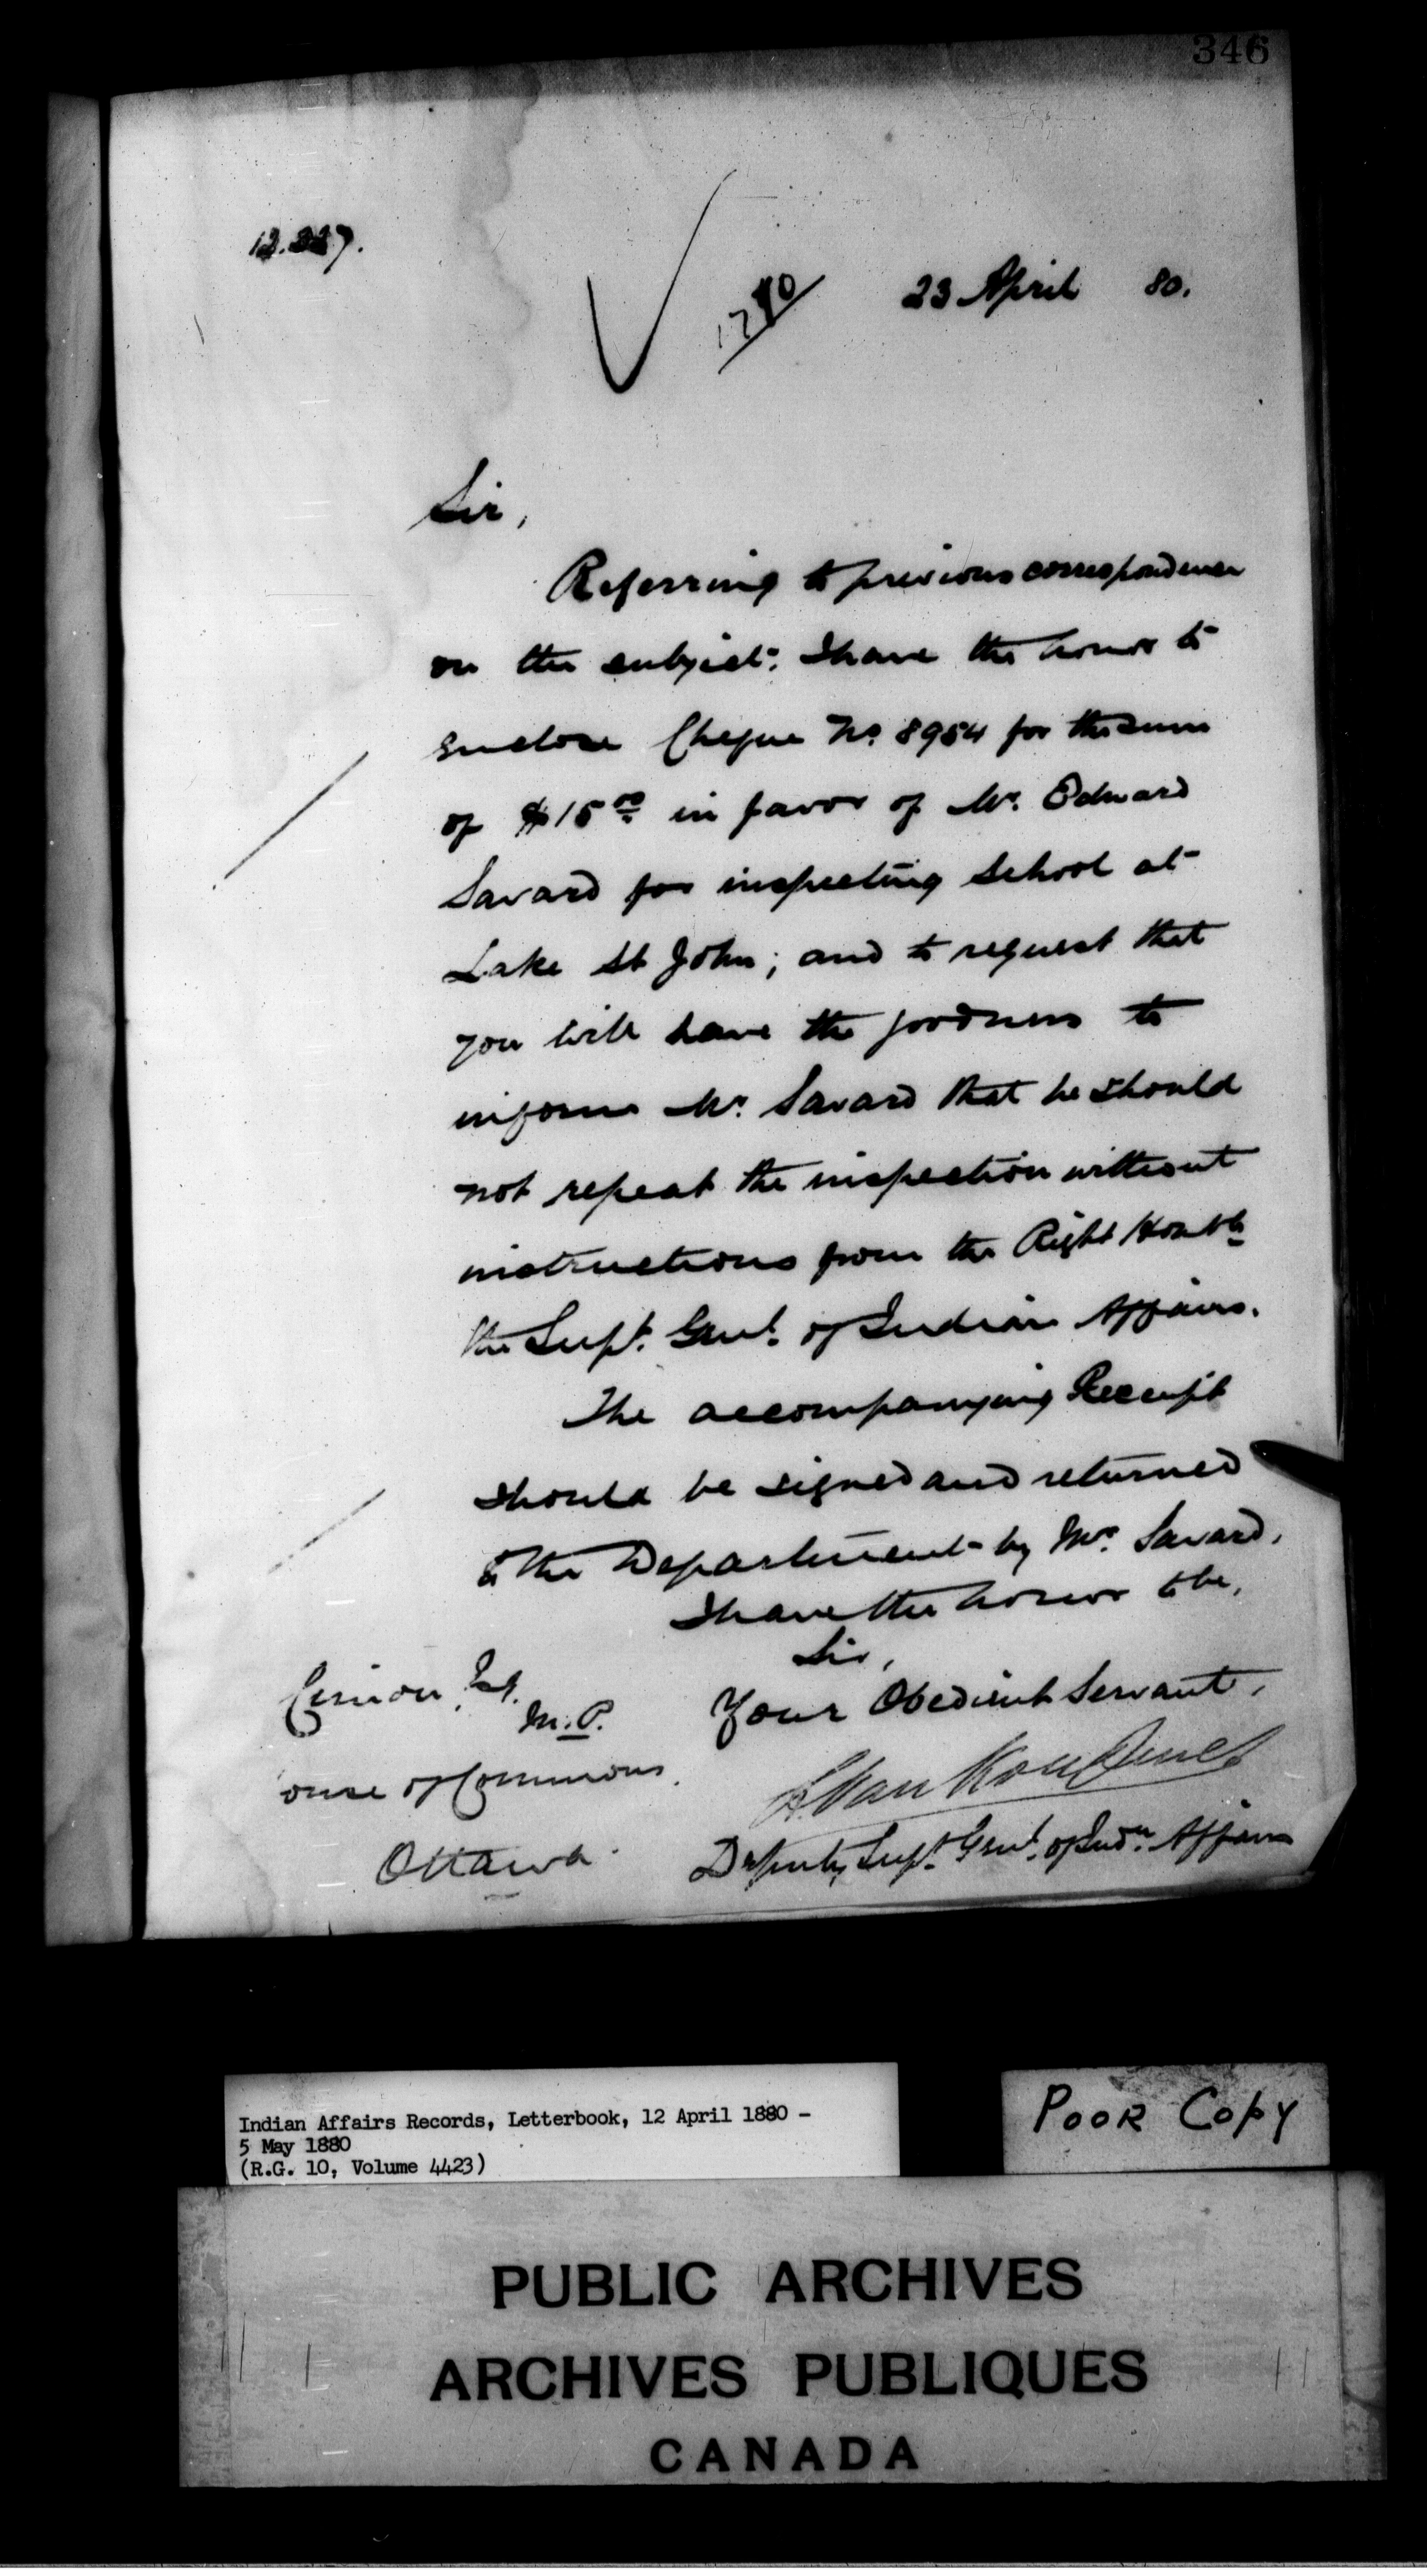 346
23 April 80.
Sir,
Referring to previous correspondence
on the subject. I have the honor to
enclose Cheque No. 8954 for the sum
of $15 00 in favor of Mr. Edward
Savard for inspecting School at
Lake St John; and to request that
you will have the goodness to
inform Mr. Savard that he should
not repeat the inspection without
instructions from the Right Honble
the Supt. Genl. of Indian Affairs.
The accompanying Receipt
should be signed and returned
to the Department by Mr. Savard.
I have the honor to be,
Sir,
Your Obedient Servant,
Cimon, Esq.
M.P.
ouse of Commons.
Ottawa.
L. VanKoughnet
Deputy Supt. Genl. of Indn. Affairs
Indian Affairs Records, Letterbook, 12 April 1880 -
5 May 1880
(R.G. 10, Volume 4423)
POOR COPY
PUBLIC ARCHIVES
ARCHIVES PUBLIQUES
CANADA